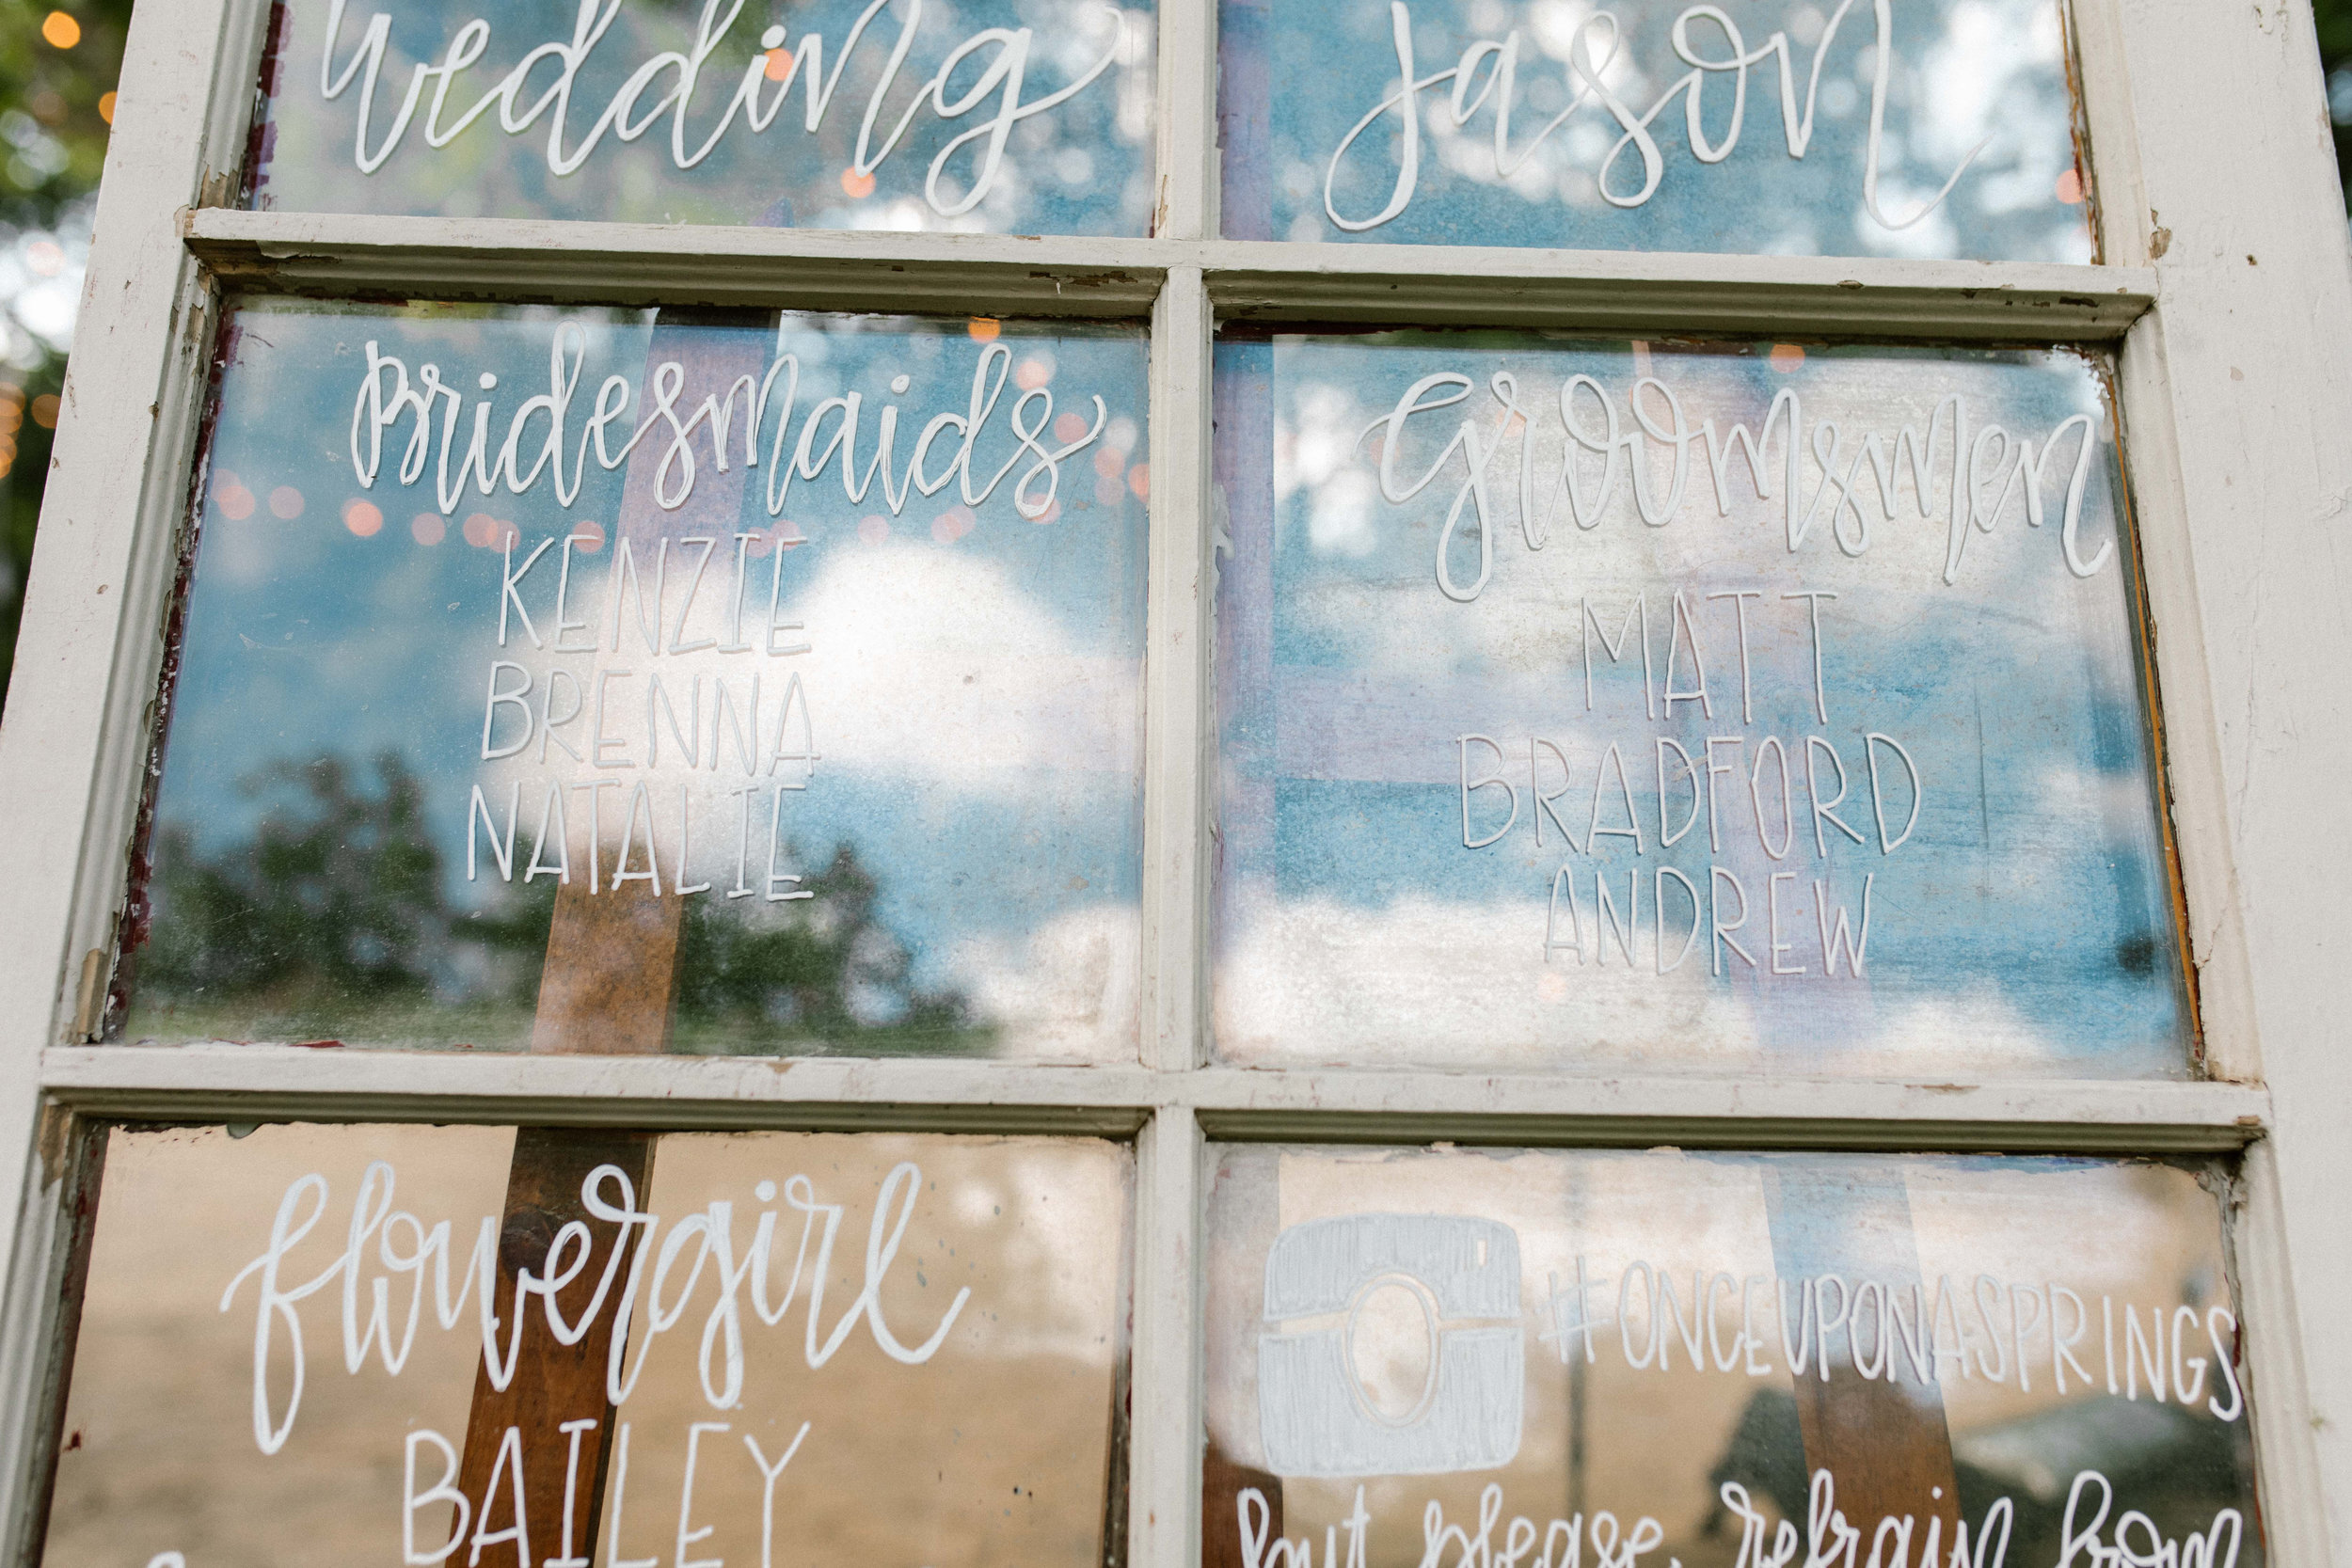 wedding
Jason
Bridesmaids
KENZIE
BRENNA
NATALIE
Groomsmen
MATT
BRADFORD
ANDREW
flowergirl
BAILEY
#ONCEUPONASPRINGS
but please, refrain from